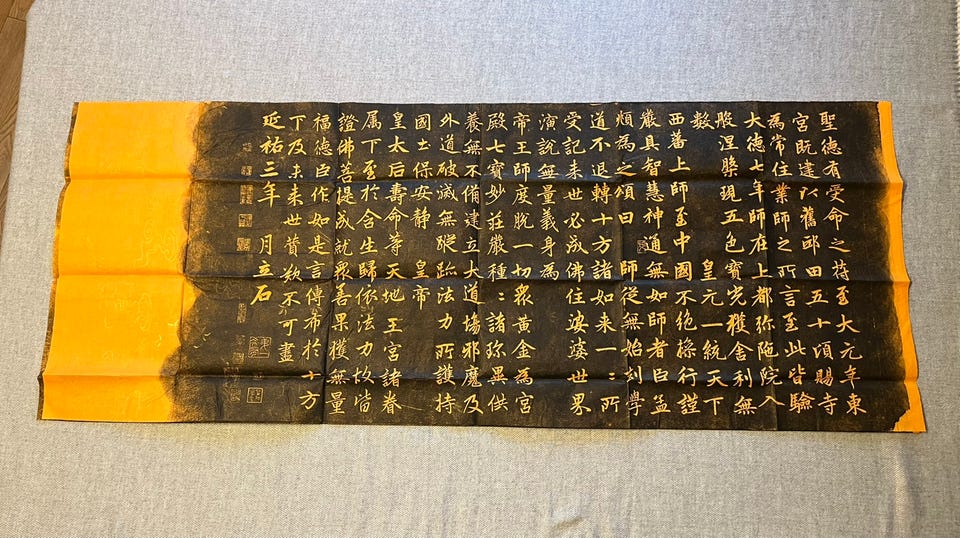 聖德有受命之符至大元年東
宮既建以舊邸田五十頃賜寺
為常住業師之所言至此皆驗
大德七年師在上都弥陁院入
般涅槃現五色寶光獲舍利無
數 皇元一統天下
西蕃上師至中國不絶操行謹
嚴具智慧神通無如師者臣孟
頫為之頌曰 師從無始劫學
道不退轉十方諸如来一二所
受記来世必成佛住娑婆世界
演說無量義身為
帝王師度脫一切衆黃金為宮
殿七寶妙莊嚴種二諸珎異供
養無不備建立大道場邪魔及
外道破滅無蹤跡法力所護持
國土保安靜 皇帝
皇太后壽命等天地王宮諸眷
属下至於含生歸依法力故皆
證佛菩提成就衆善果獲無量
福德臣作如是言傳布於十方
下及未来世賛歎不可盡
延祐三年 月立石